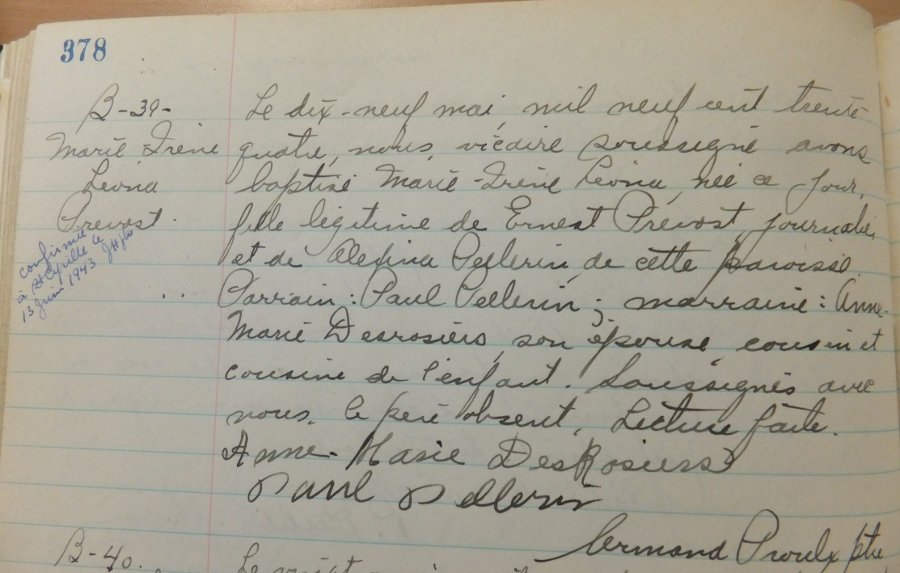 378
B-39-
Marie-Irène
Léona
Prévost.
confirmée
à St Cyrille le
13 Juin 1943
Le dix-neuf mai, mil neuf cent trente-
quatre, nous, vicaire soussigné avons
baptisé Marie-Irène Léona, née ce jour,
fille légitime de Ernest Prévost, journalier
et de Pellerin, de cette paroisse.
Parrain: Paul Pellerin; marraine: Anne-
Marie Desrosiers, son épouse, cousin et
cousine de l'enfant. Soussignés avec
nous. le père absent, Lecture faite.
Anne-Marie DesRosiers
Paul Pellerin
Proulx ptre
B-40.
Le vingt